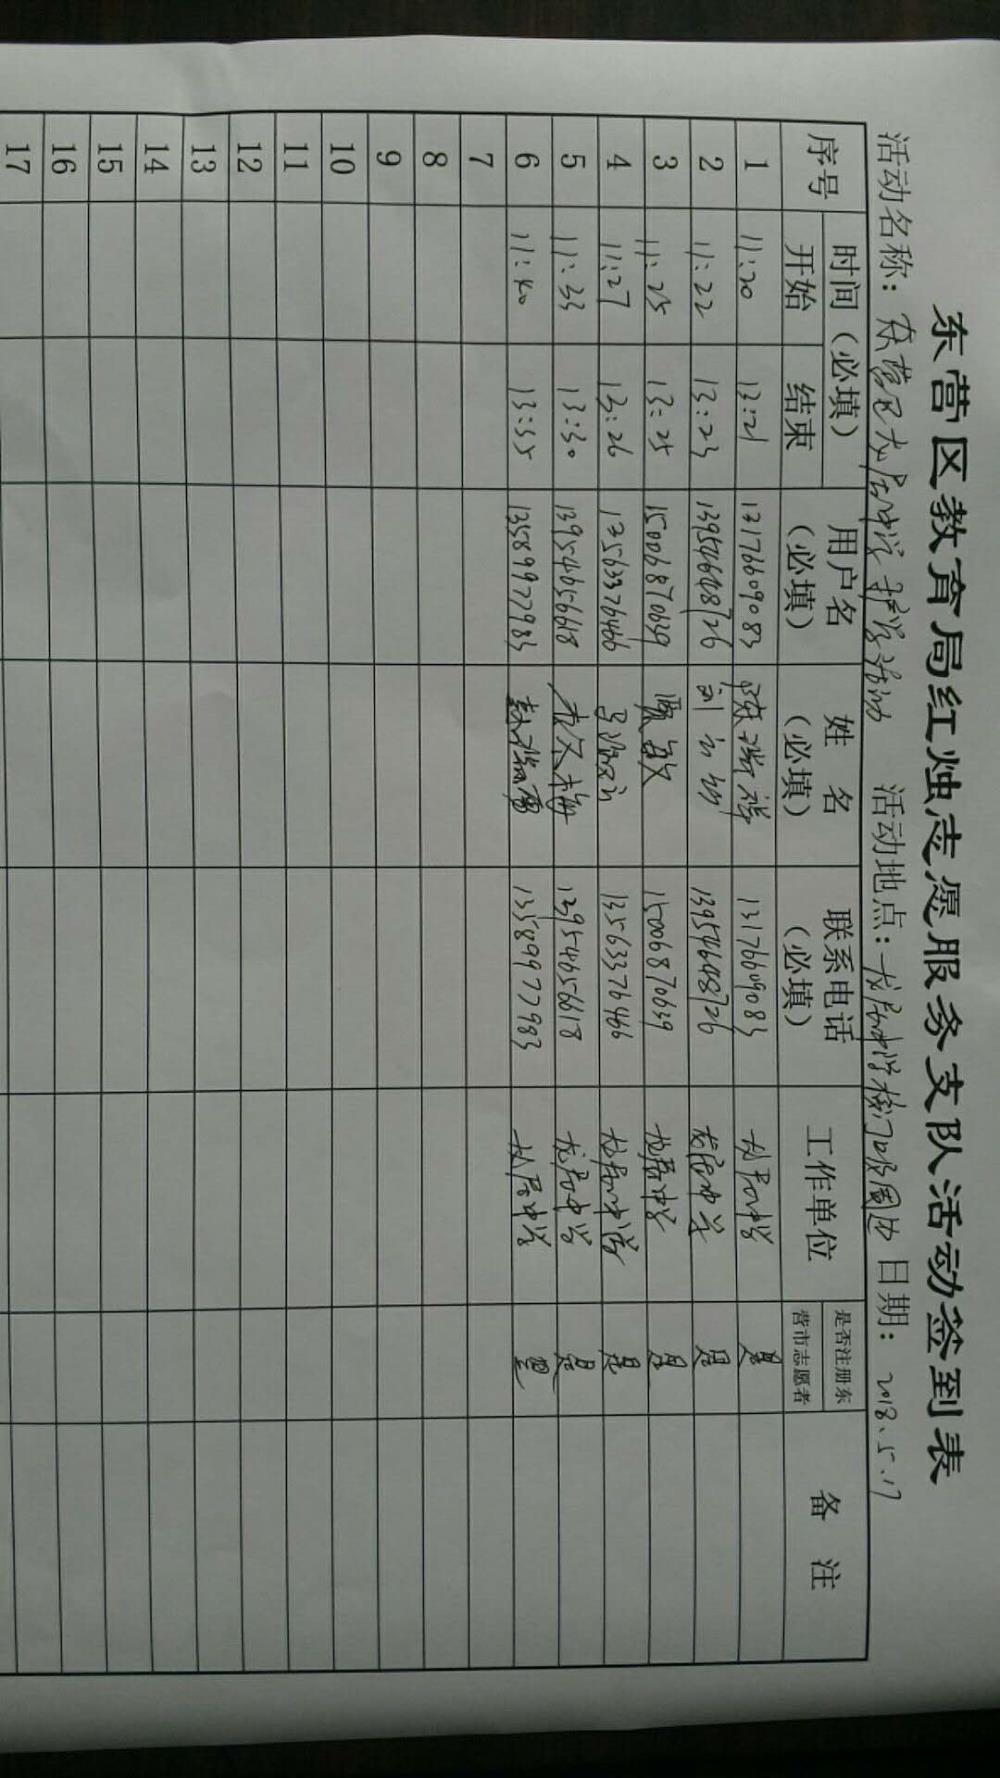 东营区教育局红烛志愿服务支队活动签到表
活动名称：东营区龙居中学护学活动 活动地点：龙居中学校门口及周边 日期：2018.5.17
序号 时间（必填） 用户名（必填） 姓名（必填） 联系电话（必填） 工作单位 是否注册东营市志愿者 备注
开始 结束
1 11:20 13:21 13176609083 13176609083 龙居中学 是
2 11:22 13:23 13954648726 13954648726 龙居中学 是
3 11:25 13:25 15006870639 敏 15006870639 龙居中学 是
4 11:27 13:26 13563376466 13563376466 龙居中学 是
5 11:33 13:30 13954656618 梅 13954656618 龙居中学 是
6 11:40 13:35 13589977983 13589977983 龙居中学 是
7
8
9
10
11
12
13
14
15
16
17